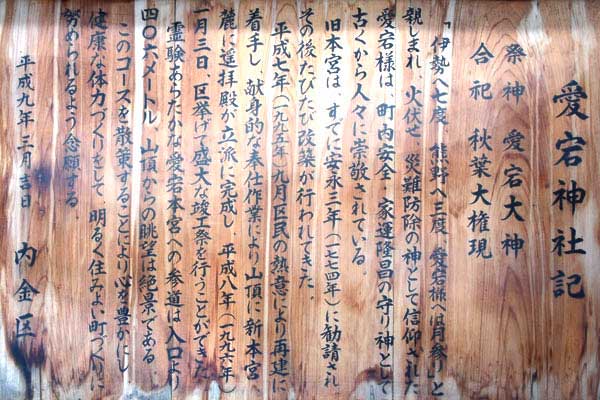 愛宕神社記
祭神 愛宕大神
合祀 秋葉大権現
「伊勢へ七度 熊野へ三度 愛宕様は月参り」と
親しまれ、火伏せ、災難防除の神として信仰された
愛宕様は、町内安全・家運隆昌の守り神として
古くから人々に崇敬されている。
旧本宮は、すでに安永三年(一七七四年)に勧請され
その後たびたび改築が行われてきた。
平成七年(一九九五年)九月区民の熱意により再建に
着手し、献身的な奉仕作業により山頂に新本宮、
麓に遥拝殿が立派に完成し 平成八年(一九九六年)
一月三日、区挙げて盛大な竣工祭を行うことができた
霊験あらたかな愛宕本宮への参道は入口より
四〇六メートル、山頂からの眺望は絶景である
このコースを散策することにより心を豊かにし
健康な体力づくりをして、明るく住みよい町づくりに
努められるよう念願する。
平成九年三月吉日 内金区